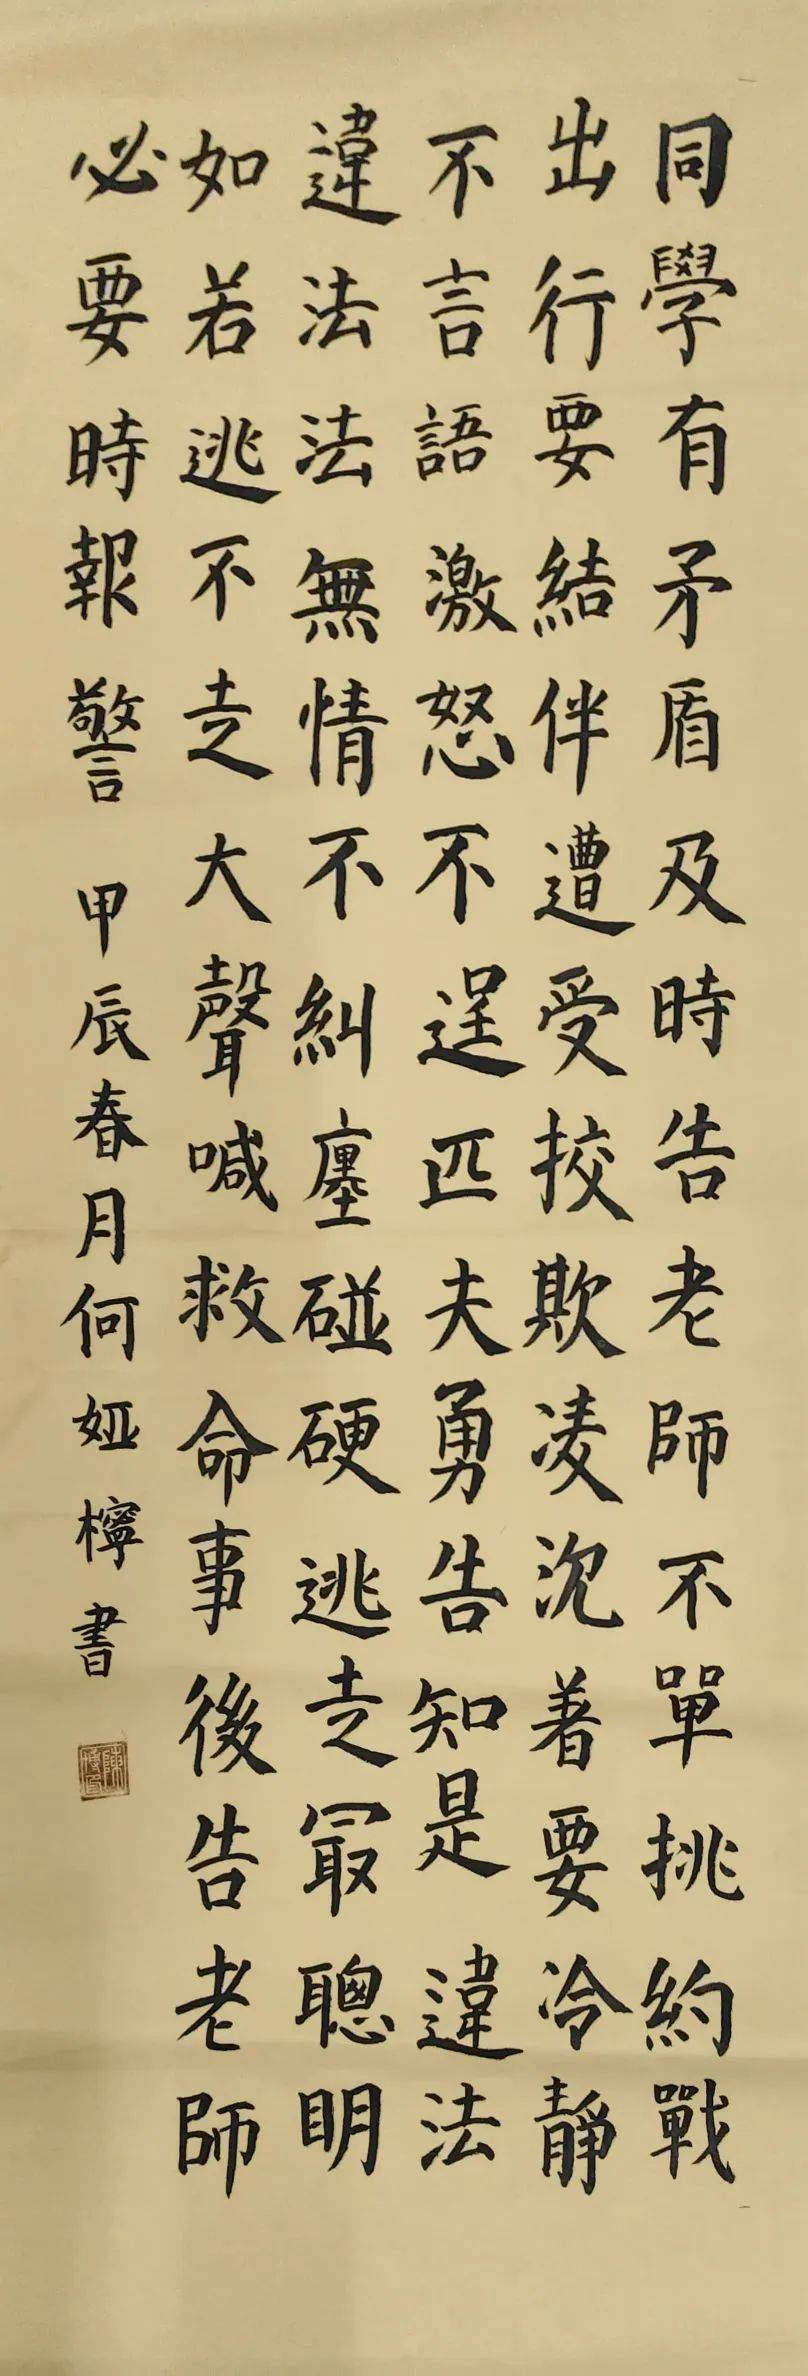 同學有矛盾及時告老師不單挑約戰
出行要結伴遭受挍欺凌沉着要冷靜
不言語激怒不逞匹夫勇告知是違法
違法法無情不糾廛碰硬逃走最聰明
如若逃不走大聲喊救命事後告老師
必要時報警 甲辰春月何婭檸書